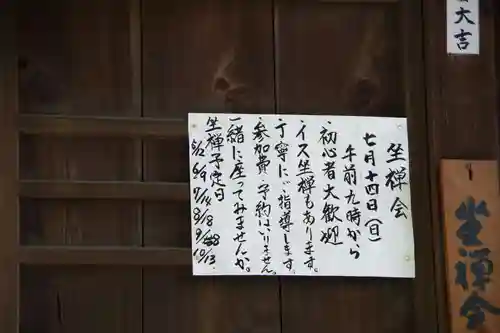 坐禅会
七月十四日(日)
午前九時から
初心者大歓迎
イス坐禅もあります。
丁寧にご指導します。
参加費、予約はいりません。
一緒に坐ってみませんか。
坐禅予定日
5/12 6/9 7/14 8/8 9/8 10/13
大吉
坐禅会